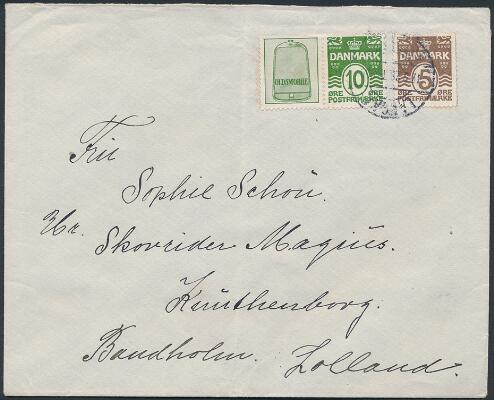 OLDSMOBILE
DANMARK
10
ØRE ØRE
POSTFRIMÆRKE
DANMARK
5
ØRE ØRE
POSTFRIMÆRKE
Frú
Sophie Schøn.
Hr. Skovrider Magius.
Knuthenborg.
Bandholm. Lolland.